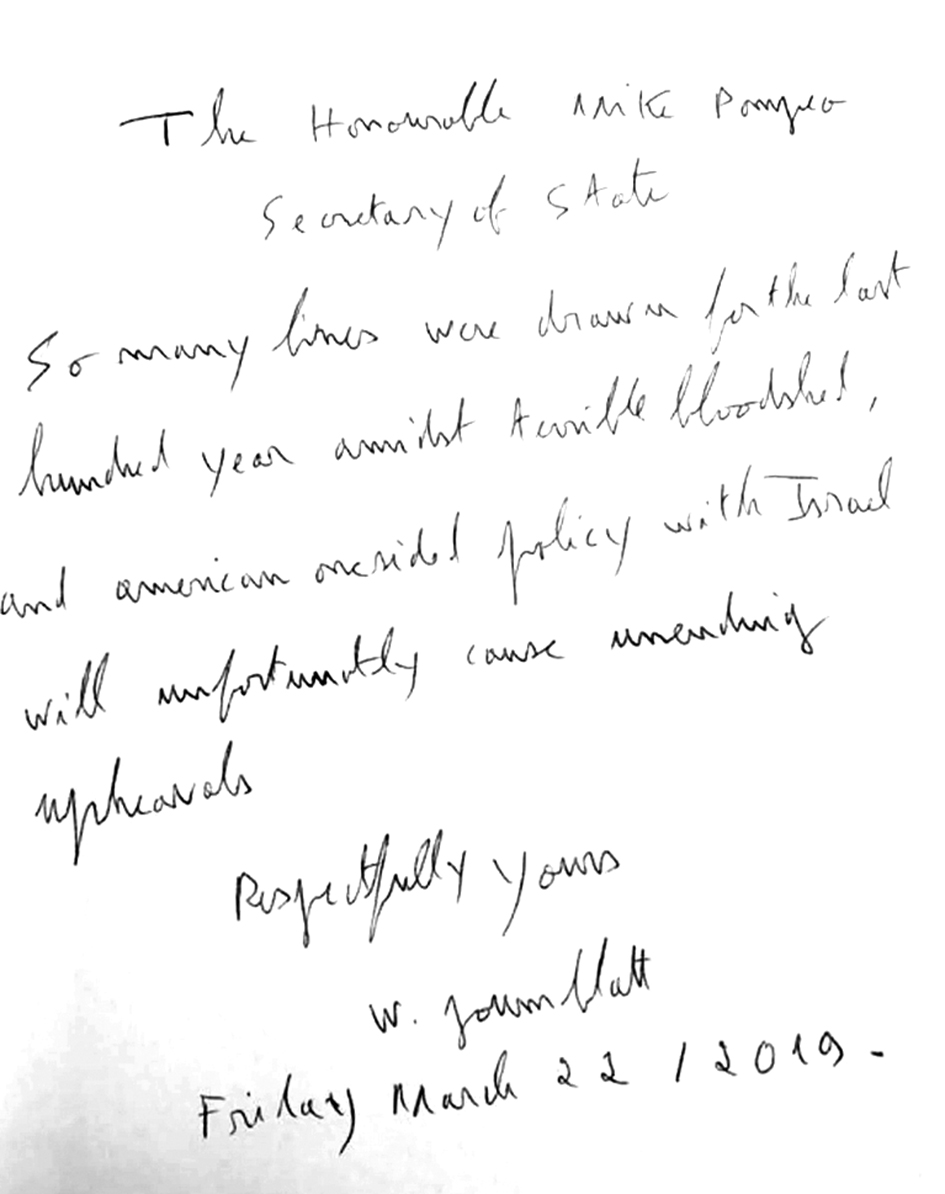 The Honourable Mike Pompeo
Secretary of State
So many lines were drawn for the last
hundred year amidst terrible bloodshed,
and american onesided policy with Israel
will unfortunatly cause unending
upheavals
Respectfully yours
W. Joumblatt
Friday March 22 / 2019 -